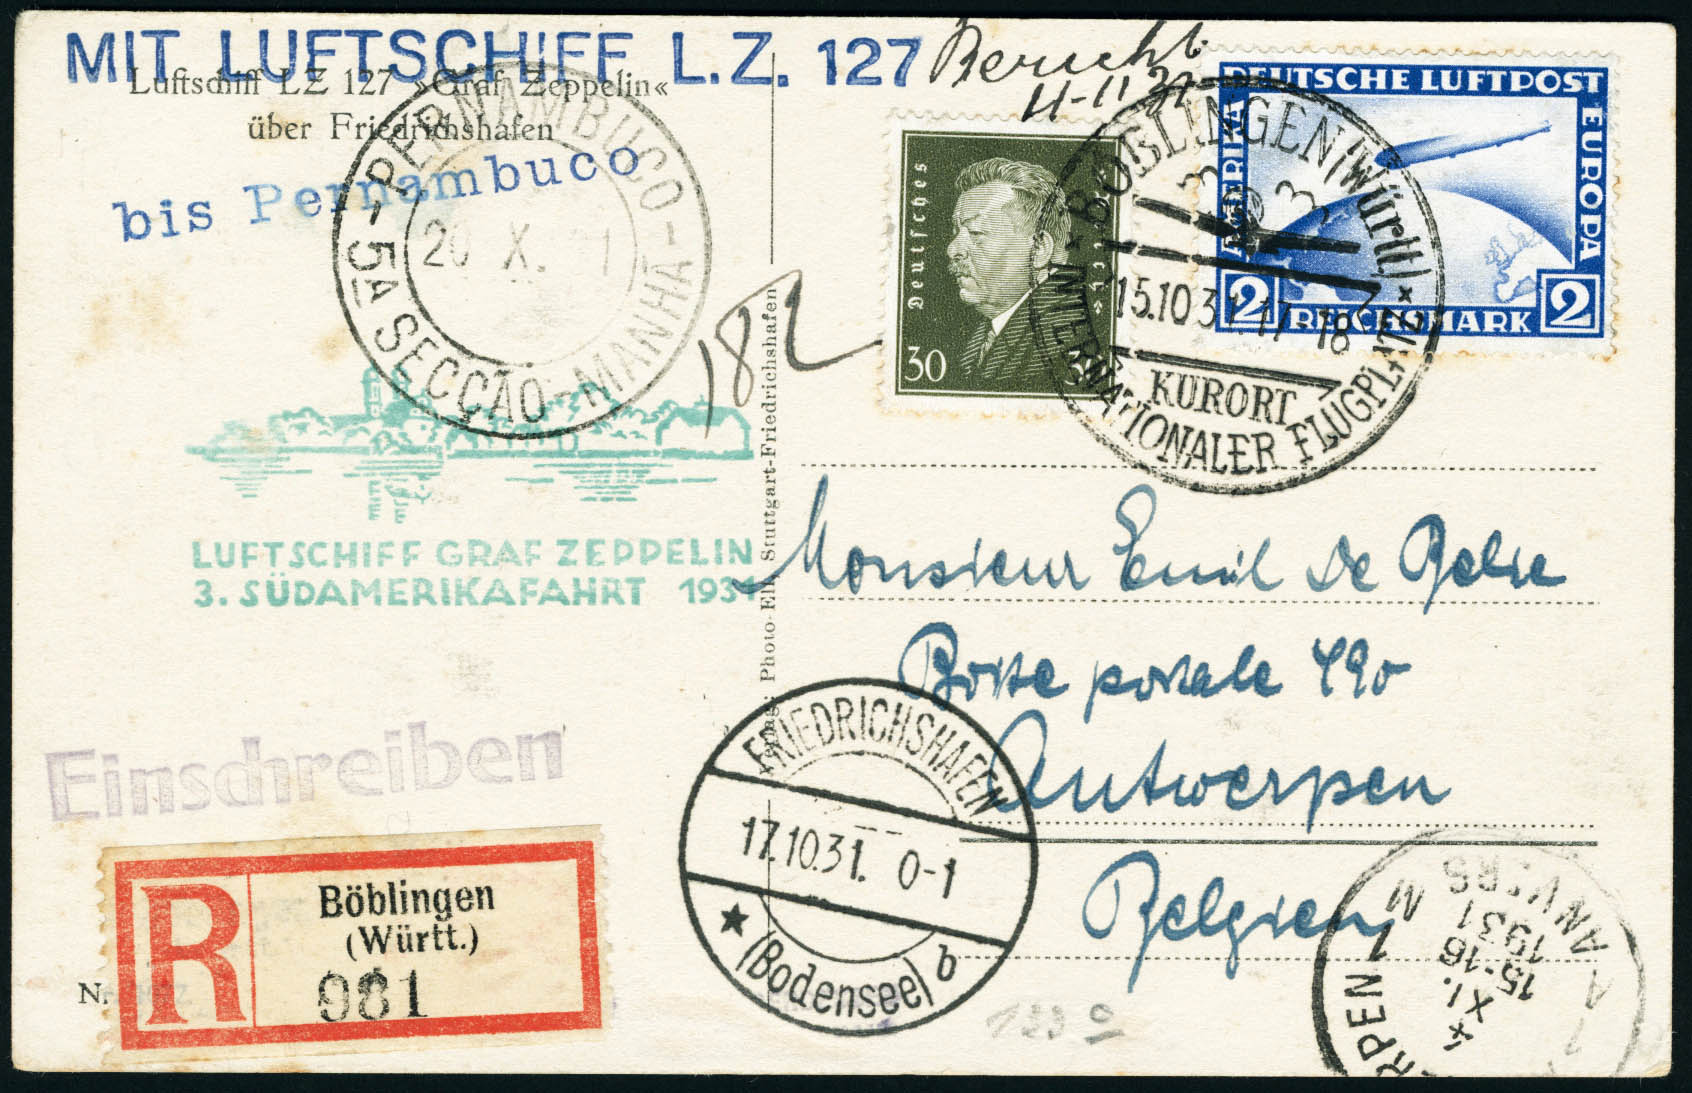 MIT LUFTSCHIFF L.Z. 127
Luftschiff LZ 127 »Graf Zeppelin«
über Friedrichshafen
bis Pernambuco
- PERNAMBUCO -
20 X.
5A SECÇÃO - MANHÃ
182
11-11 31
Deutsches Reich
30 30
DEUTSCHE LUFTPOST
EUROPA
AMERIKA
2 REICHSMARK 2
BÖBLINGEN (Württ.)
15.10.31.17-18
KURORT
INTERNATIONALER FLUGPLATZ
LUFTSCHIFF GRAF ZEPPELIN
3. SÜDAMERIKAFAHRT 1931
Verlag: Photo-Ell, Stuttgart-Friedrichshafen
Monsieur Emil De
Boite postale 490
Antwerpen
Belgien
Einschreiben
R
Böblingen
(Württ.)
081
N.
FRIEDRICHSHAFEN
17.10.31. 0-1
★ (Bodensee) b
123
ANTWERPEN 1 M
1 A ANVERS
4 XI. 15-16
1931